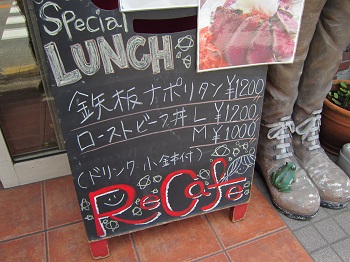 Special
LUNCH
鉄板ナポリタン ¥1200
ローストビーフ丼 L ¥1200
M ¥1000
(ドリンク 小鉢付)
ReCafe